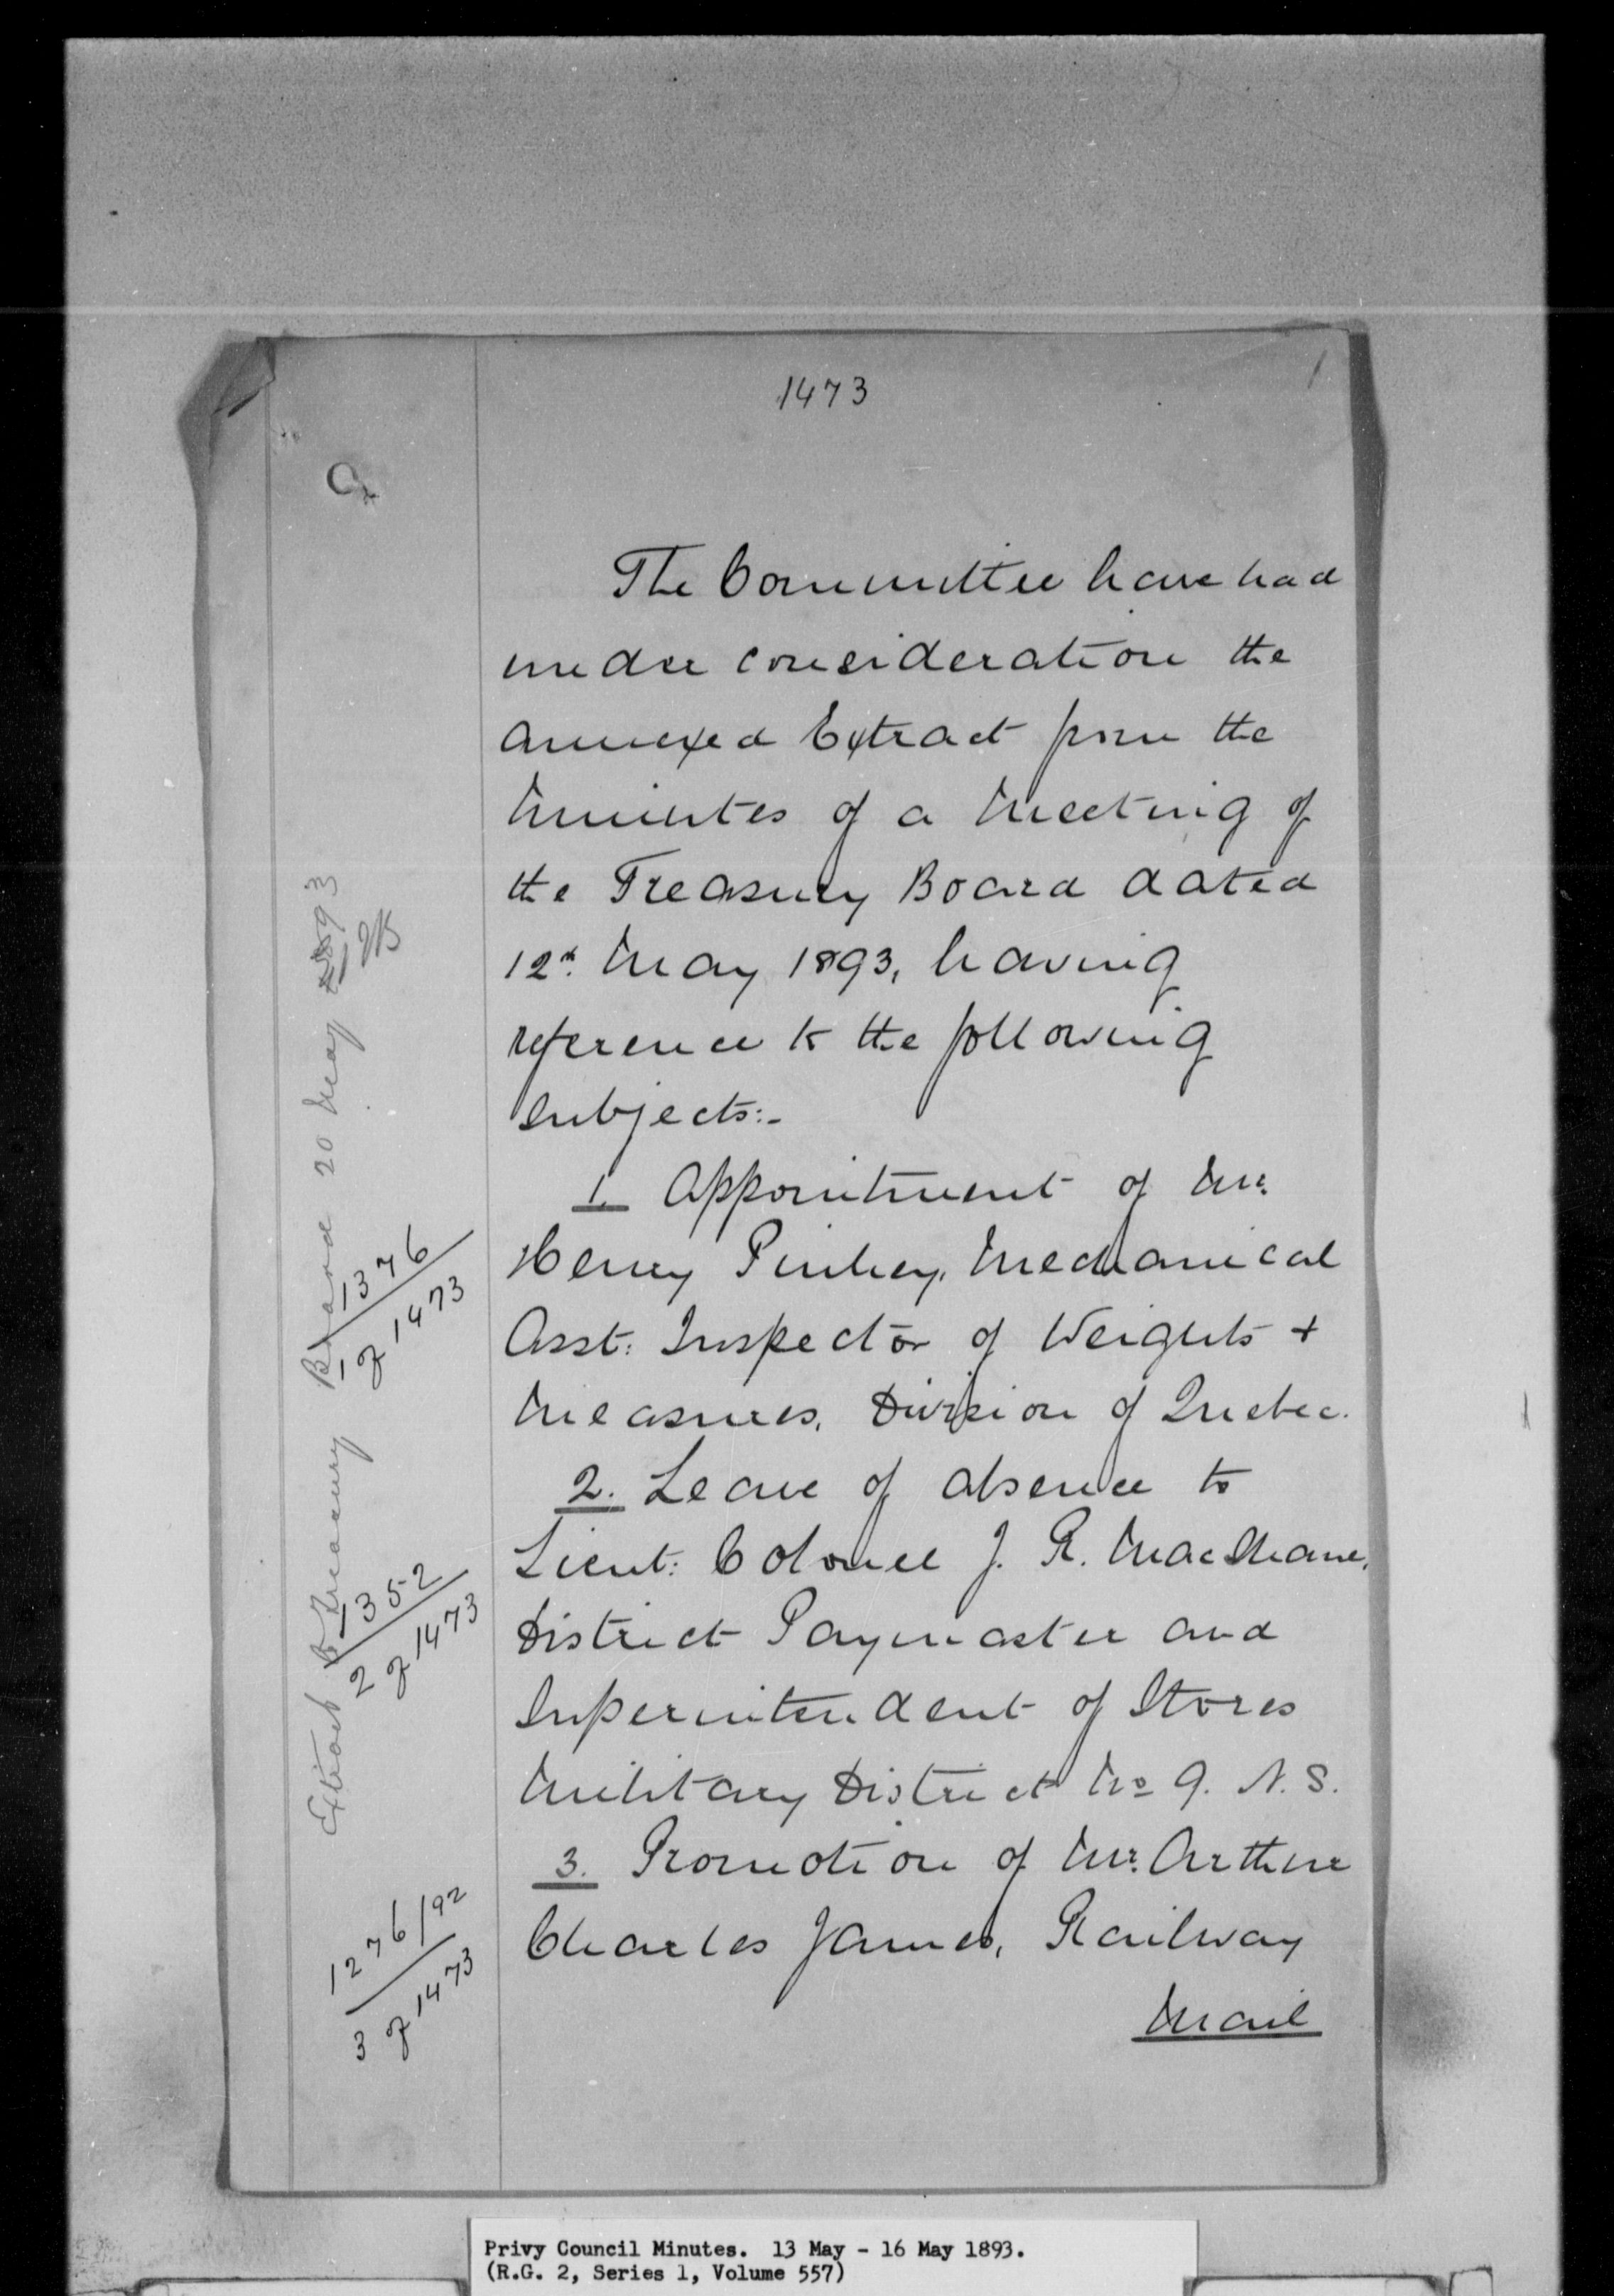 1473
1
The Committee have had
under consideration the
annexed Extract from the
Minutes of a Meeting of
the Treasury Board dated
12th May 1893, having
reference to the following
subjects:-
1. Appointment of Mr.
Henry Pinhey, Mechanical
Asst: Inspector of Weights +
Measures, Division of Quebec.
2. Leave of absence to
Lieut: Colonel J. R. MacShane,
District Paymaster and
Superintendent of Stores
Military District No 9. N.S.
3. Promotion of Mr. Arthur
Charles James, Railway
Mail
Extract to Treasury Board 20 May 1893
1376
1 of 1473
1352
2 of 1473
1276/92
3 of 1473
Privy Council Minutes. 13 May - 16 May 1893.
(R.G. 2, Series 1, Volume 557)